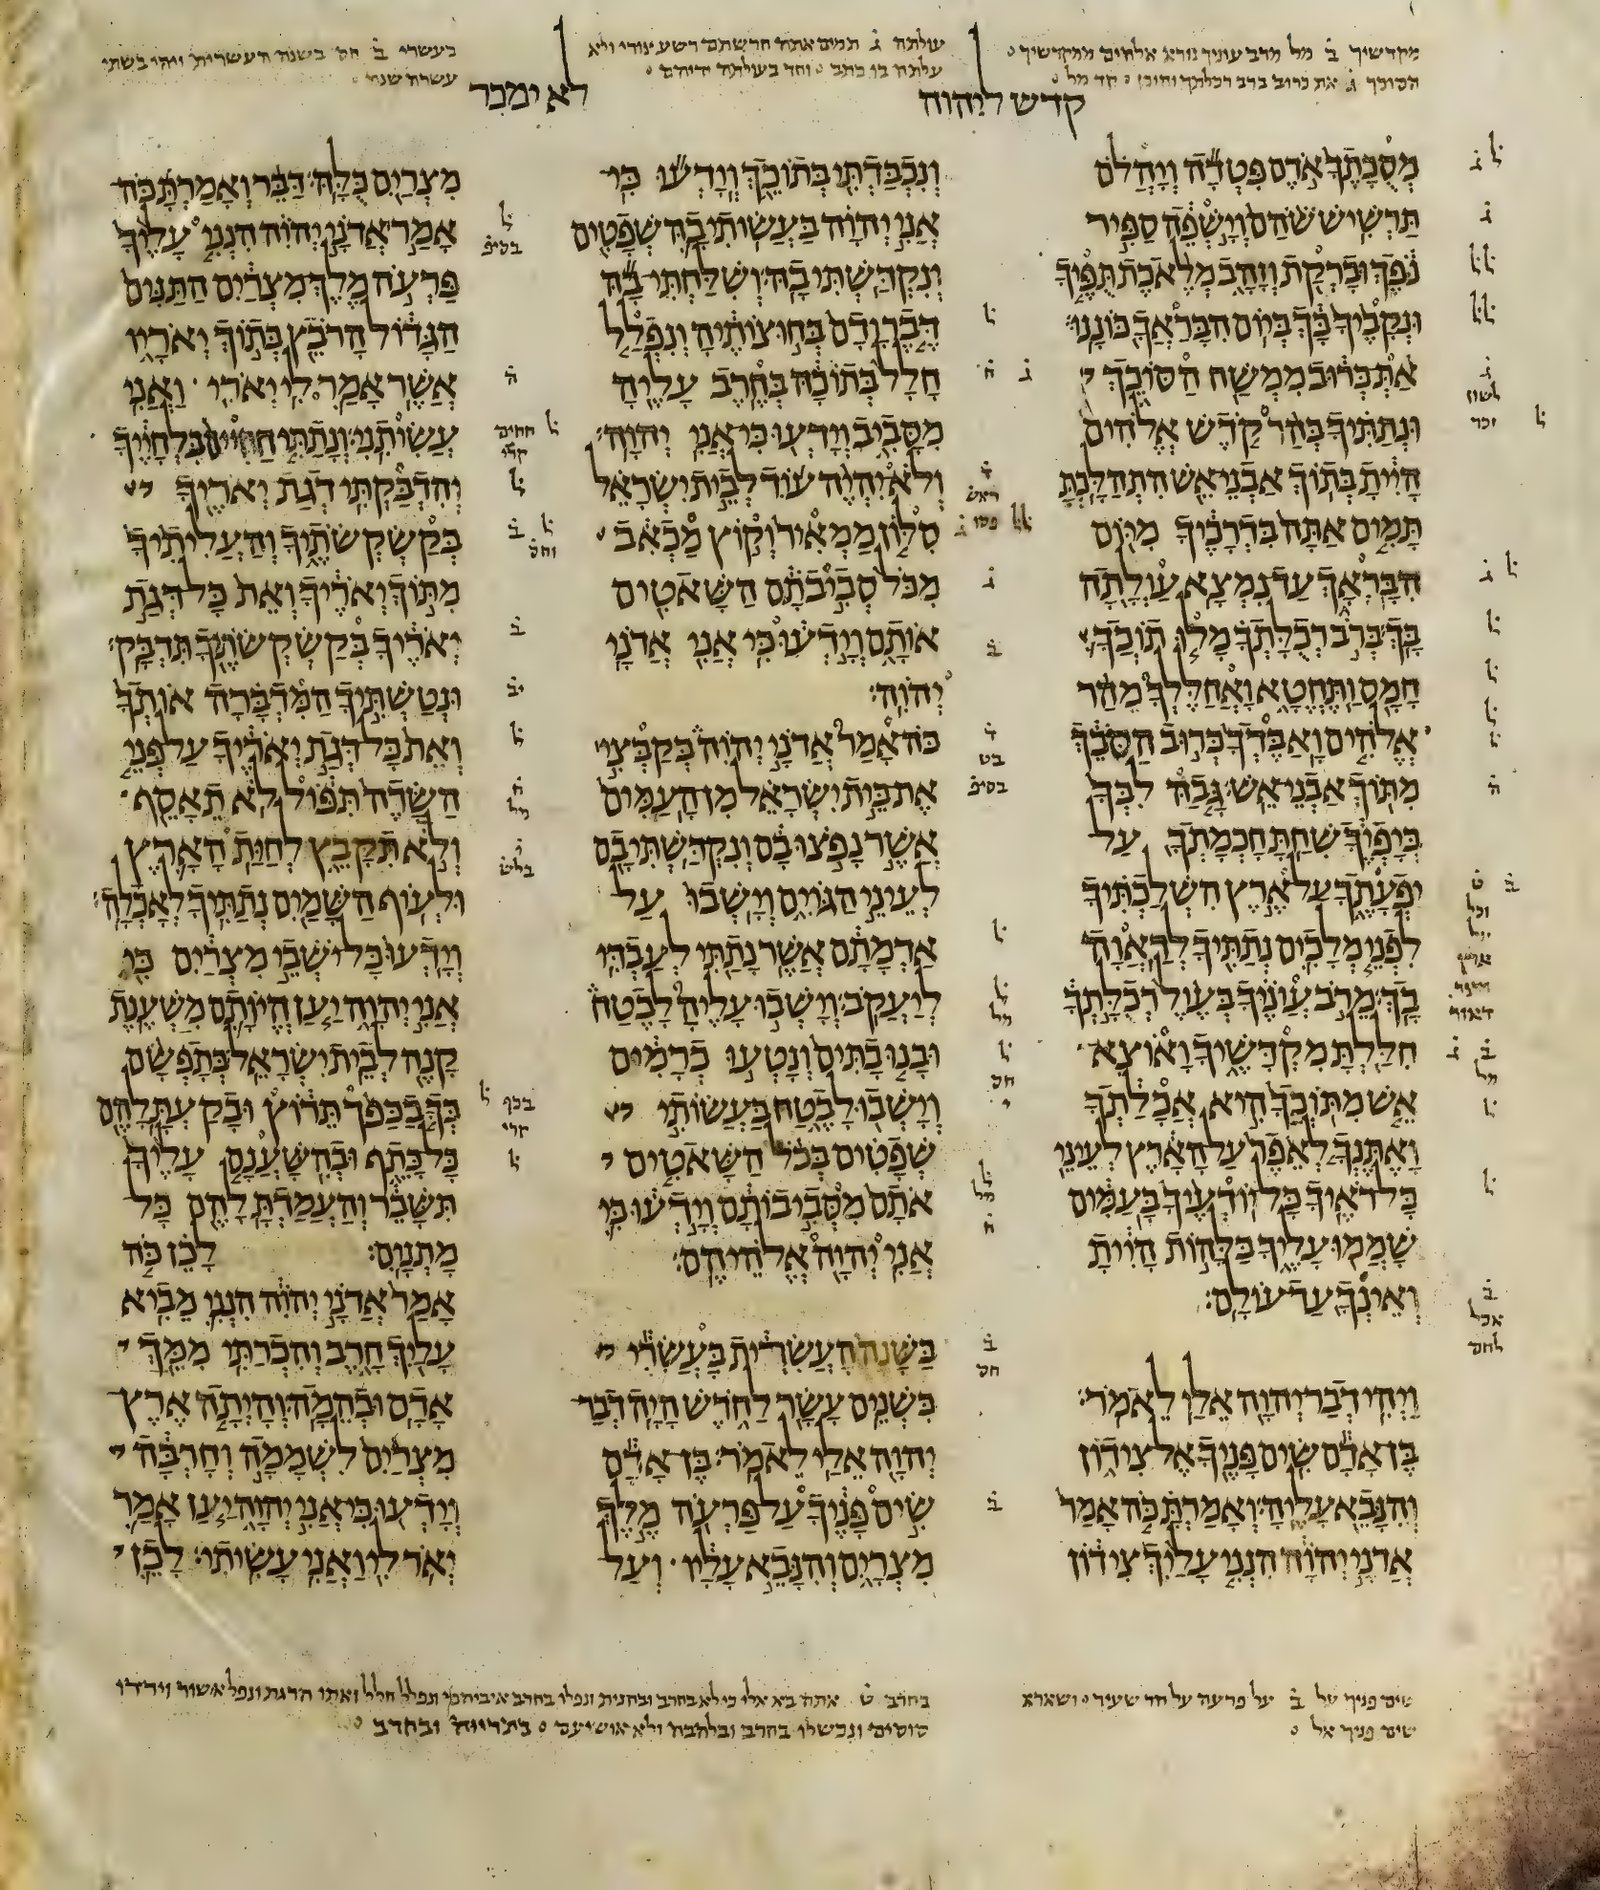 מקדשיך ב מל מרב עוניך נורא אלהים ממקדשיך
הסוכך ג את כרוב ברב רכלתך והוכן וחד מל
עולתה ג תמים אתה חרשתם רשע יגודו ולא
עלתה בו כתב וחד בעולתה ידיהם
בעשרי ב חס בשנה העשרית ויהי בשתי
עשרה שנה
קדש ליהוה
לא ימכר
מסכתך אדם פטדה ויהלם
תרשיש שהם וישפה ספיר
נפך וברקת וזהב מלאכת תפיך
ונקביך בך ביום הבראך כוננו׃
את כרוב ממשח הסוכך
ונתתיך בהר קדש אלהים
היית בתוך אבני אש התהלכת׃
תמים אתה בדרכיך מיום
הבראך עד נמצא עולתה
בך׃ ברב רכלתך מלו תוכך
חמס ותחטא ואחללך מהר
אלהים ואבדך כרוב הסכך
מתוך אבני אש׃ גבה לבך
ביפיך שחת חכמתך על
יפעתך על ארץ השלכתיך
לפני מלכים נתתיך לראוה
בך׃ מרב עוניך בעול רכלתך
חללת מקדשיך ואוצא
אש מתוכך היא אכלתך
ואתנך לאפר על הארץ לעיני
כל ראיך׃ כל יודעיך בעמים
שממו עליך בלהות היית
ואינך עד עולם׃
ויהי דבר יהוה אלי לאמר׃
בן אדם שים פניך אל צידון
והנבא עליה׃ ואמרת כה אמר
אדני יהוה הנני עליך צידון
ונכבדתי בתוכך וידעו כי
אני יהוה בעשותי בה שפטים
ונקדשתי בה׃ ושלחתי בה
דבר ודם בחוצותיה ונפלל
חלל בתוכה בחרב עליה
מסביב וידעו כי אני יהוה׃
ולא יהיה עוד לבית ישראל
סלון ממאיר וקוץ מכאב
מכל סביבתם השאטים
אותם וידעו כי אני אדני
יהוה׃
כה אמר אדני יהוה בקבצי
את בית ישראל מן העמים
אשר נפצו בם ונקדשתי בם
לעיני הגוים וישבו על
אדמתם אשר נתתי לעבדי
ליעקב׃ וישבו עליה לבטח
ובנו בתים ונטעו כרמים
וישבו לבטח בעשותי
שפטים בכל השאטים
אתם מסביבותם וידעו כי
אני יהוה אלהיהם׃
בשנה העשרית בעשרי
בשנים עשר לחדש היה דבר
יהוה אלי לאמר׃ בן אדם
שים פניך על פרעה מלך
מצרים והנבא עליו ועל
מצרים כלה׃ דבר ואמרת כה
אמר אדני יהוה הנני עליך
פרעה מלך מצרים התנים
הגדול הרבץ בתוך יאריו
אשר אמר לי יארי ואני
עשיתני׃ ונתתי חחיים בלחייך
והדבקתי דגת יאריך
בקשקשתיך והעליתיך
מתוך יאריך ואת כל דגת
יאריך בקשקשתיך תדבק׃
ונטשתיך המדברה אותך
ואת כל דגת יאריך על פני
השדה תפול לא תאסף
ולא תקבץ לחית הארץ
ולעוף השמים נתתיך לאכלה׃
וידעו כל ישבי מצרים כי
אני יהוה יען היותם משענת
קנה לבית ישראל׃ בתפשם
בך בכפך תרוץ ובקעת להם
כל כתף ובהשענם עליך
תשבר והעמדת להם כל
מתנים׃ לכן כה
אמר אדני יהוה הנני מביא
עליך חרב והכרתי ממך
אדם ובהמה׃ והיתה ארץ
מצרים לשממה וחרבה
וידעו כי אני יהוה יען אמר
יאר לי ואני עשיתי׃ לכן
שים פניך על ב על פרעה על הר שעיר ושארא
שים פניך אל
בחרב ט אתה בא אלי כי לא בחרב ובחנית ונפלו בחרב איביהם נופלל חלל ואתו הרגת ונפל אשור וירדו
סוסים ונכשלו בחרב ובלהבה ולא אושיעם